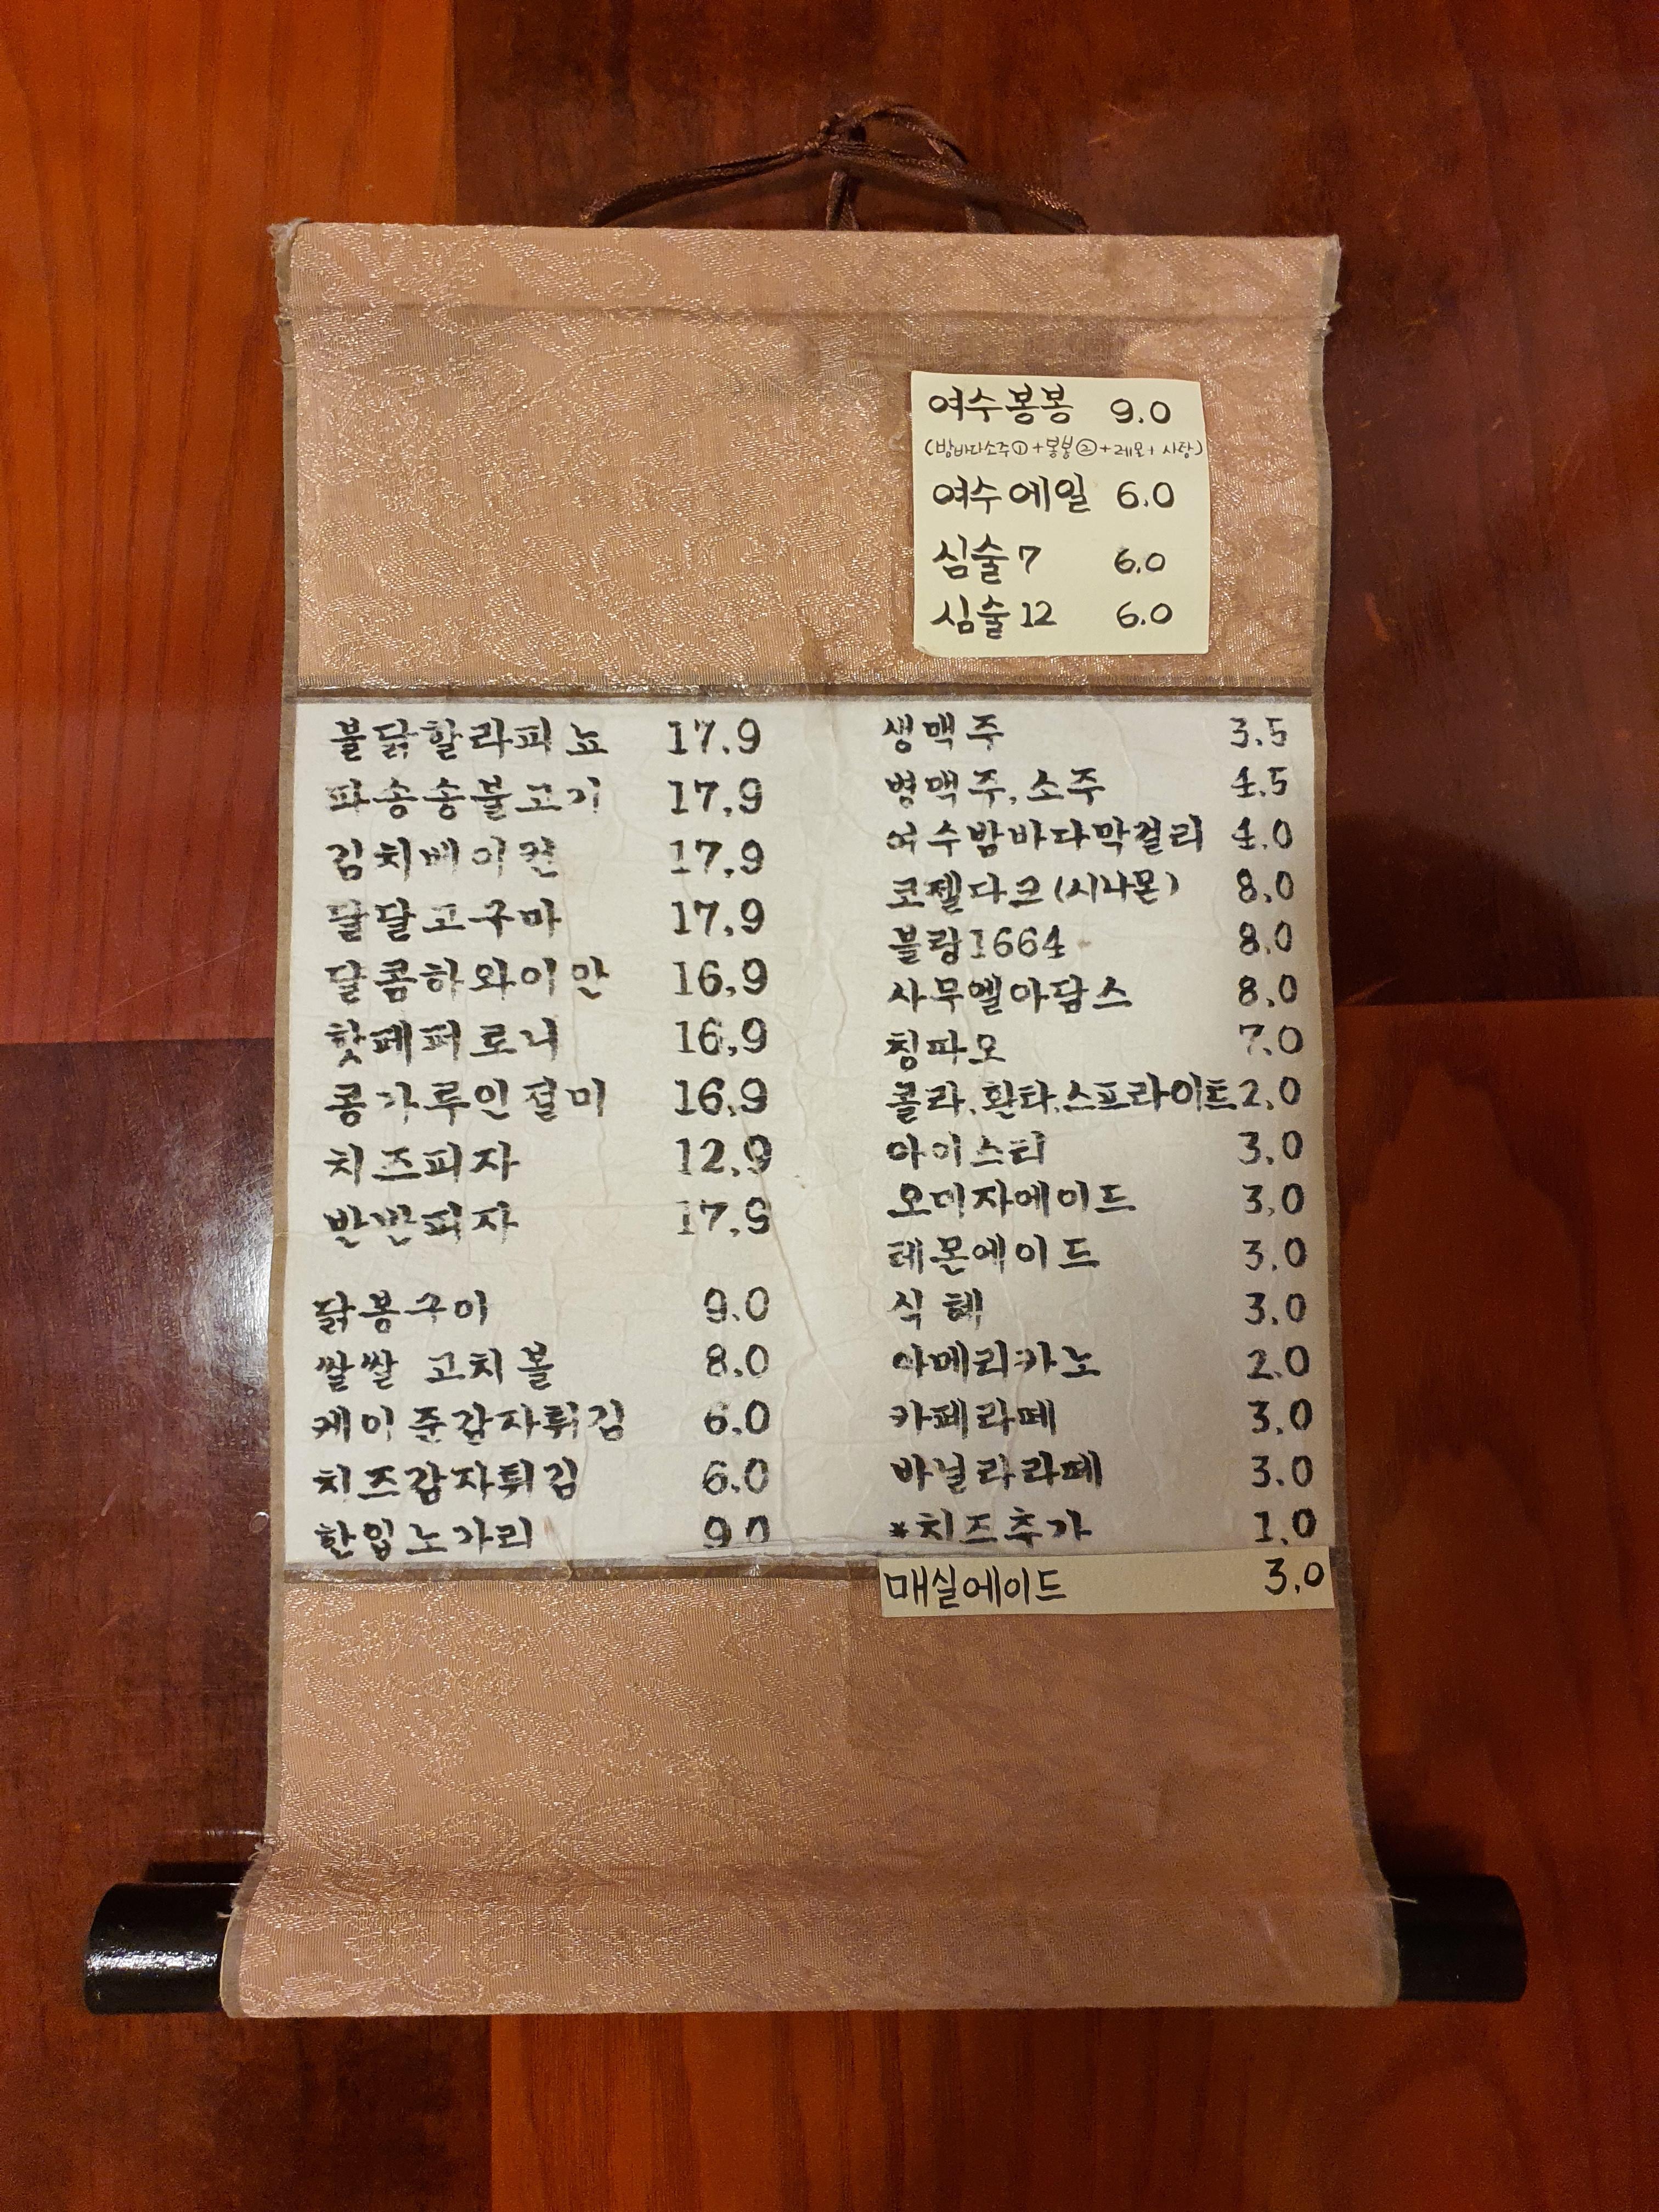 여수봉봉 9.0
(밤바다소주①+봉봉②+레몬+사탕)
여수에일 6.0
심술7 6.0
심술12 6.0
불닭할라피뇨 17.9
파송송불고기 17.9
김치베이컨 17.9
달달고구마 17.9
달콤하와이안 16.9
핫페퍼로니 16.9
콩가루인절미 16.9
치즈피자 12.9
반반피자 17.9
닭봉구이 9.0
쌀쌀 고치볼 8.0
케이준감자튀김 6.0
치즈감자튀김 6.0
한입노가리 9.0
생맥주 3.5
병맥주,소주 4.5
여수밤바다막걸리 4.0
코젤다크(시나몬) 8.0
블랑1664 8.0
사무엘아담스 8.0
칭따오 7.0
콜라,환타,스프라이트 2.0
아이스티 3.0
오미자에이드 3.0
레몬에이드 3.0
식혜 3.0
아메리카노 2.0
카페라떼 3.0
바닐라라떼 3.0
*치즈추가 1.0
매실에이드 3.0